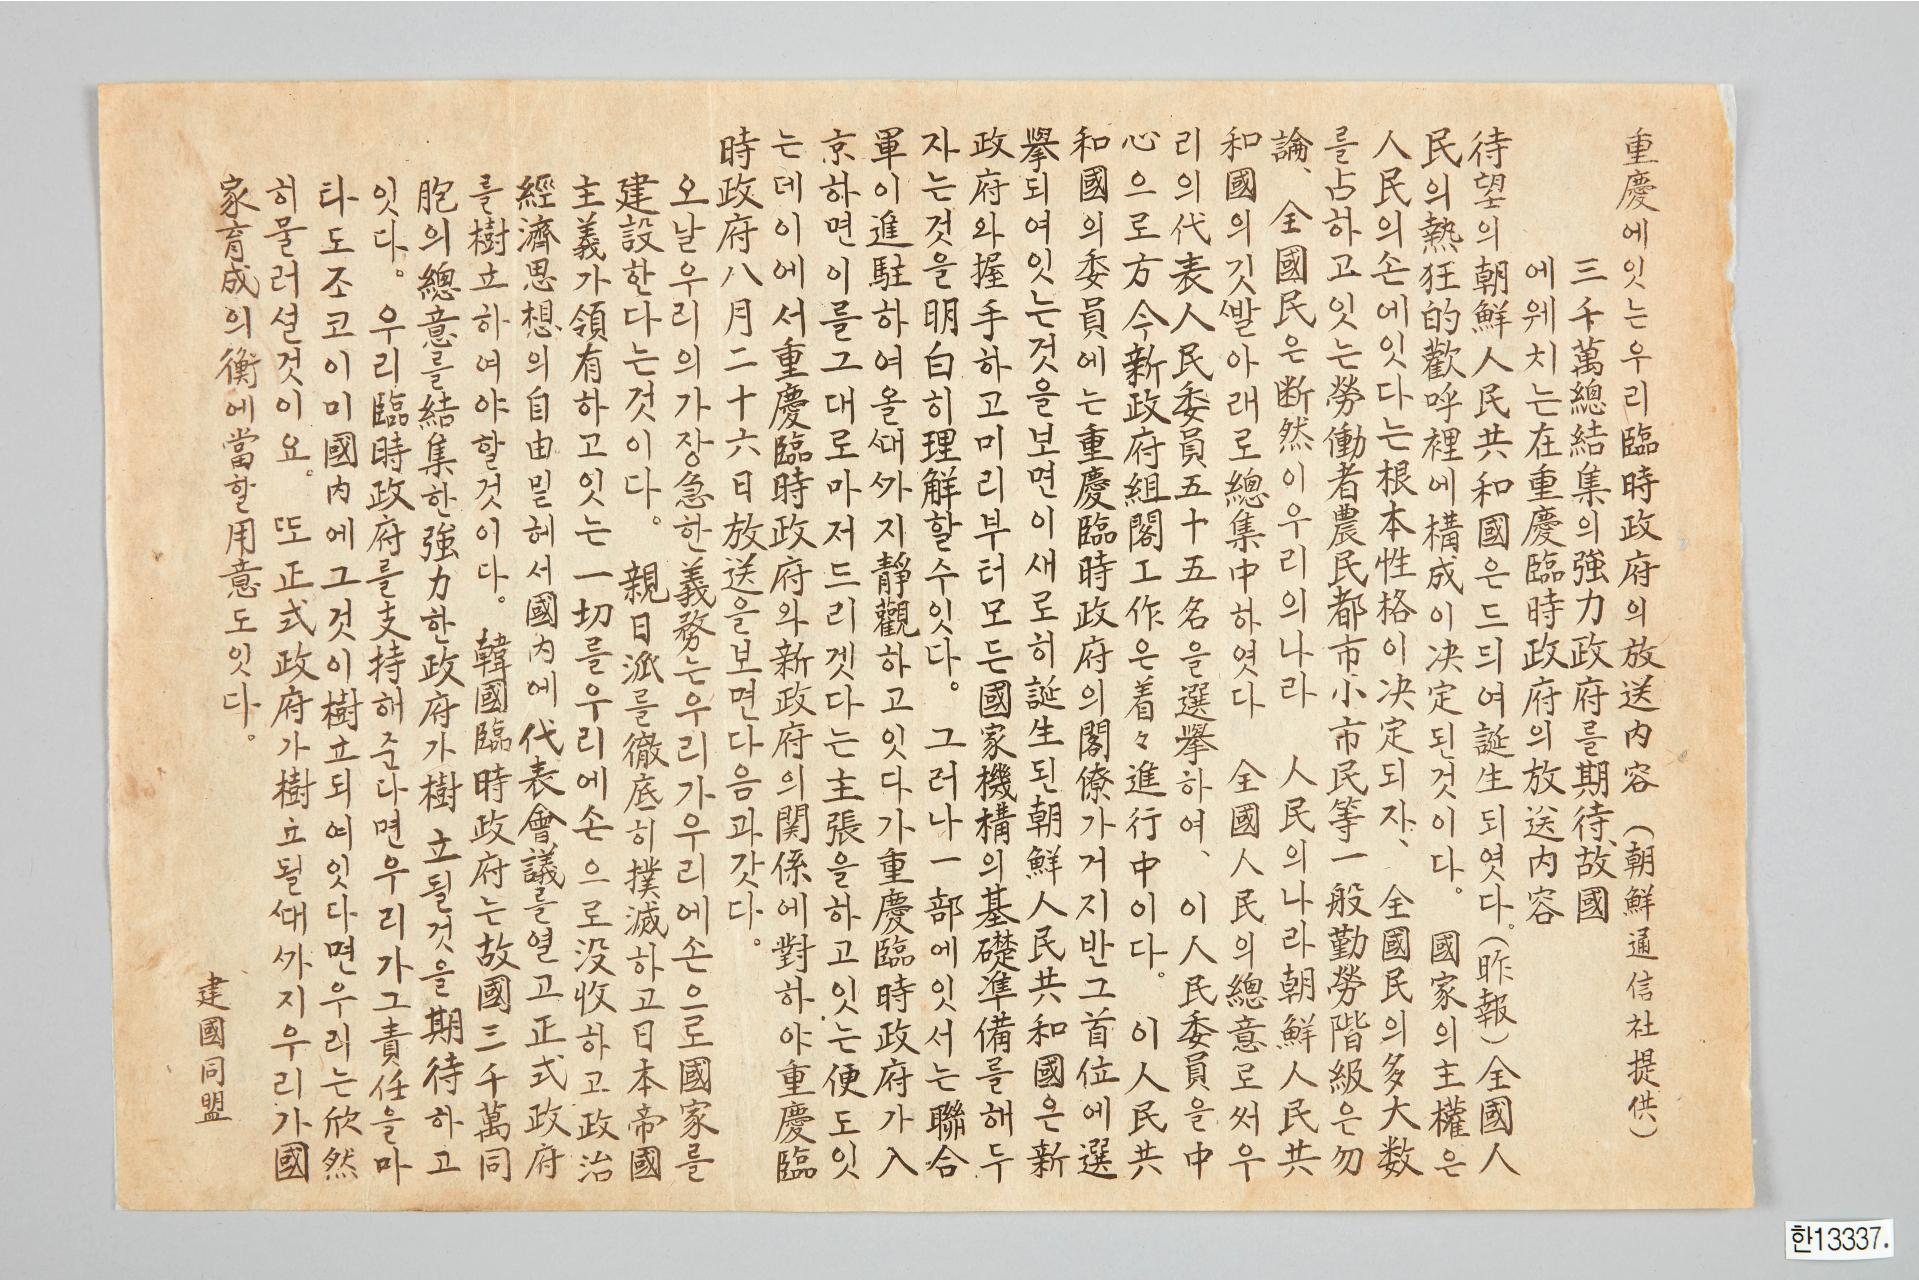 重慶에잇는우리臨時政府의放送内容(朝鮮通信社提供)
三千萬總結集의強力政府를期待、故國
에웨치는在重慶臨時政府의放送内容
待望의朝鮮人民共和國은드듸여誕生되엿다。(昨報)全國人
民의熱狂的歡呼裡에構成이決定된것이다。 國家의主權은
人民의손에잇다는根本性格이决定되자、全國民의多大数
를占하고잇는勞働者農民都市小市民等一般勤勞階級은勿
論、全國民은断然이우리의나라 人民의나라朝鮮人民共
和國의깃발아래로總集中하엿다 全國人民의總意로써우
리의代表人民委員五十五名을選擧하여、이人民委員을中
心으로方今新政府組閣工作은着々進行中이다。 이人民共
和國의委員에는重慶臨時政府의閣僚가거지반그首位에選
擧되여잇는것을보면이새로히誕生된朝鮮人民共和國은新
政府와握手하고미리부터모든國家機構의基礎準備를해두
자는것을明白히理解할수잇다。 그러나一部에잇서는聯合
軍이進駐하여올ᄯᅢᄭᅡ지靜觀하고잇다가重慶臨時政府가入
京하면이를그대로마저드리겟다는主張을하고잇는便도잇
는데이에서重慶臨時政府와新政府의関係에對하야重慶臨
時政府八月二十六日放送을보면다음과갓다。
오날우리의가장急한義務는우리가우리에손으로國家를
建設한다는것이다。 親日派를徹底히撲滅하고日本帝國
主義가領有하고잇는一切를우리에손으로没收하고政治
經濟思想의自由밑헤서國内에代表會議를열고正式政府
를樹立하여야할것이다。 韓國臨時政府는故國三千萬同
胞의總意를結集한強力한政府가樹立될것을期待하고
잇다。 우리臨時政府를支持해준다면우리가그責任을마
타도조코이미國内에그것이樹立되여잇다면우리는欣然
히물러설것이요。 ᄯᅩ正式政府가樹立될ᄯᅢᄭᅡ지우리가國
家育成의衡에當할用意도잇다。
建國同盟
한13337.